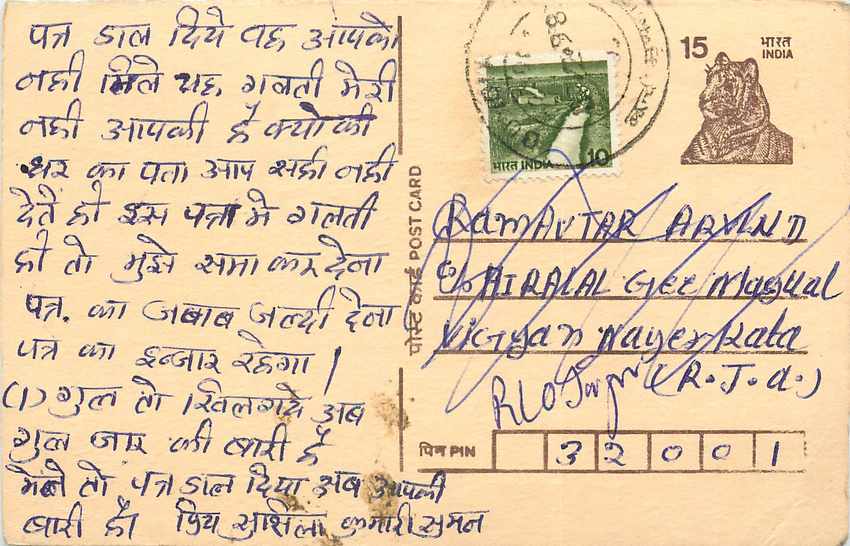 पत्र डाल दिये वह आपको
नही मिले यह गलती मेरी
नही आपकी है क्योकी
घर का पता आप सही नही
देते हो इस पत्र मे गलती
हो तो मुझे समा कर देना
पत्र. का जबाब जल्दी देना
पत्र का इन्जार रहेगा।
(1) गुल तो खिलगये अब
गुल जार की बारी है
मेने तो पत्र डाल दिया अब आपकी
बारी है। प्रिय सुशिला कुमारी सुमन
पोस्ट कार्ड POST CARD
भारत INDIA 10
15 भारत
INDIA
RAMAVTAR ARVIND
C/o HIRALAL Gee
VIGYAN Nayer Kata
(R.J.a.)
पिन PIN 32001